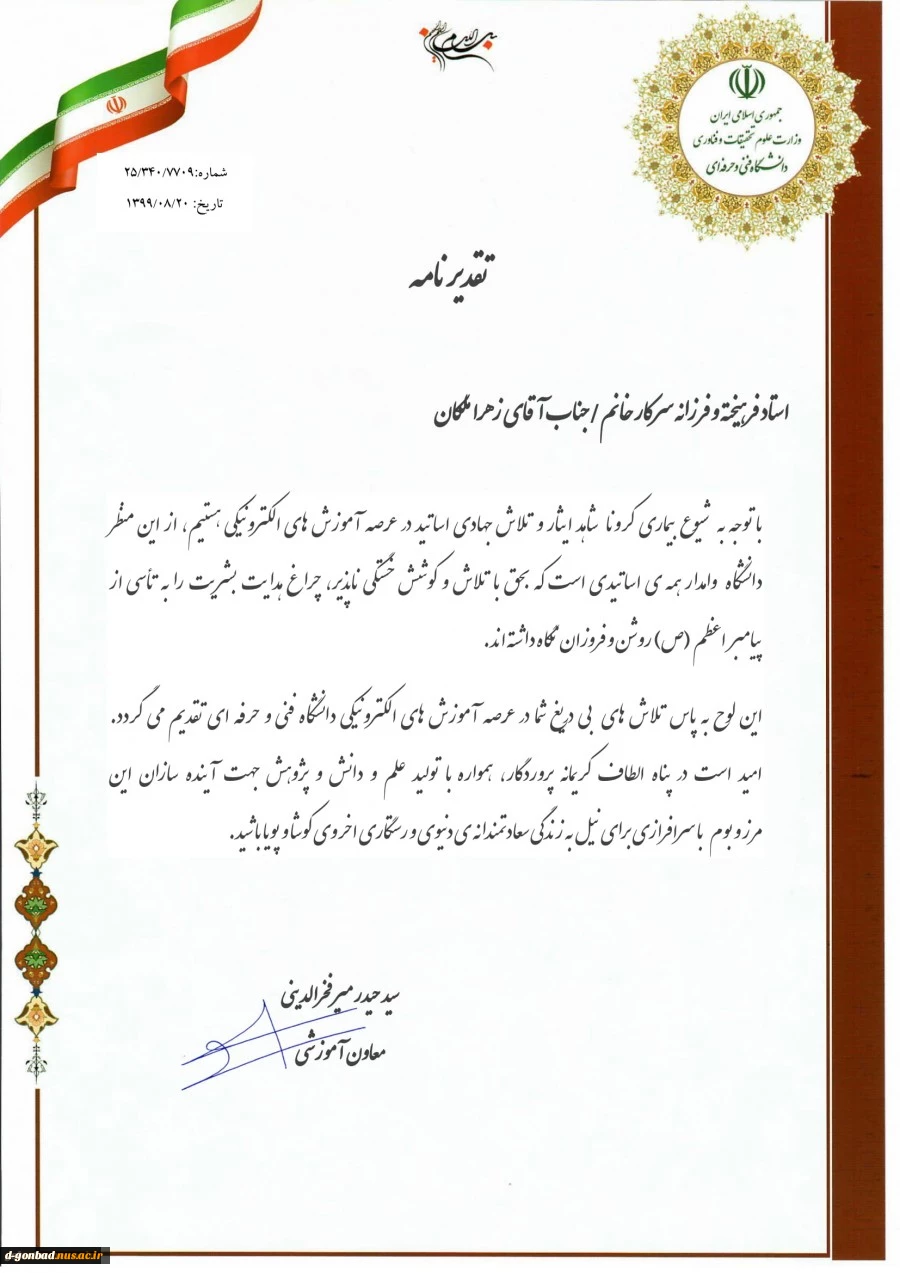 بسم الله الرحمن الرحیم
جمهوری اسلامی ایران
وزارت علوم تحقیقات و فناوری
دانشگاه فنی و حرفه ای
شماره:۲۵/۳۴۰/۷۷۰۹
تاریخ: ۱۳۹۹/۰۸/۲۰
تقدیر نامه
استاد فرهیخته و فرزانه سرکار خانم / جناب آقای زهرا ملکان
با توجه به شیوع بیماری کرونا شاهد ایثار و تلاش جهادی اساتید در عرصه آموزش های الکترونیکی هستیم، از این منظر
دانشگاه وامدار همه ی اساتیدی است که بحق با تلاش و کوشش خستگی ناپذیر، چراغ هدایت بشریت را به تأسی از
پیامبر اعظم (ص) روشن و فروزان نگاه داشته اند.
این لوح به پاس تلاش های بی دریغ شما در عرصه آموزش های الکترونیکی دانشگاه فنی و حرفه ای تقدیم می گردد.
امید است در پناه الطاف کریمانه پروردگار، همواره با تولید علم و دانش و پژوهش جهت آینده سازان این
مرز و بوم با سرافرازی برای نیل به زندگی سعادتمندانه ی دنیوی و رستگاری اخروی کوشا و پویا باشید.
سید حیدر میرفخرالدینی
معاون آموزشی
d-gonbad.nus.ac.ir